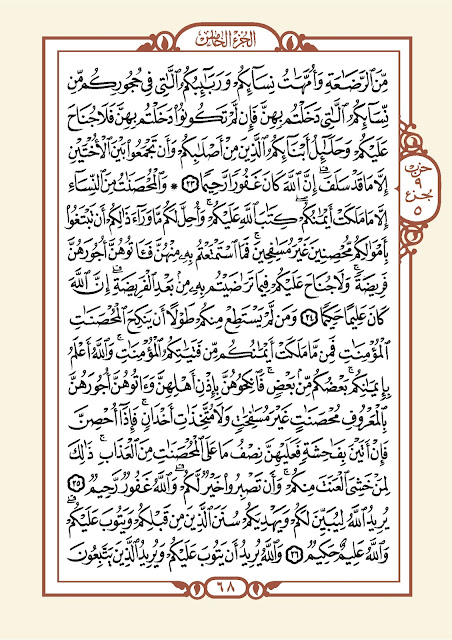 الجزء الخامس
مِّنَ ٱلرَّضَٰعَةِ وَأُمَّهَٰتُ نِسَآئِكُمْ وَرَبَٰٓئِبُكُمُ ٱلَّٰتِي فِي حُجُورِكُم مِّن
نِّسَآئِكُمُ ٱلَّٰتِي دَخَلْتُم بِهِنَّ فَإِن لَّمْ تَكُونُوا۟ دَخَلْتُم بِهِنَّ فَلَا جُنَاحَ
عَلَيْكُمْ وَحَلَٰٓئِلُ أَبْنَآئِكُمُ ٱلَّذِينَ مِنْ أَصْلَٰبِكُمْ وَأَن تَجْمَعُوا۟ بَيْنَ ٱلْأُخْتَيْنِ
إِلَّا مَا قَدْ سَلَفَ ۗ إِنَّ ٱللَّهَ كَانَ غَفُورًا رَّحِيمًا ۝٢٣ * وَٱلْمُحْصَنَٰتُ مِنَ ٱلنِّسَآءِ
إِلَّا مَا مَلَكَتْ أَيْمَٰنُكُمْ ۖ كِتَٰبَ ٱللَّهِ عَلَيْكُمْ ۚ وَأُحِلَّ لَكُم مَّا وَرَآءَ ذَٰلِكُمْ أَن تَبْتَغُوا۟
بِأَمْوَٰلِكُم مُّحْصِنِينَ غَيْرَ مُسَٰفِحِينَ ۚ فَمَا ٱسْتَمْتَعْتُم بِهِۦ مِنْهُنَّ فَـَٔاتُوهُنَّ أُجُورَهُنَّ
فَرِيضَةً ۚ وَلَا جُنَاحَ عَلَيْكُمْ فِيمَا تَرَٰضَيْتُم بِهِۦ مِنۢ بَعْدِ ٱلْفَرِيضَةِ ۚ إِنَّ ٱللَّهَ
كَانَ عَلِيمًا حَكِيمًا ۝٢٤ وَمَن لَّمْ يَسْتَطِعْ مِنكُمْ طَوْلًا أَن يَنكِحَ ٱلْمُحْصَنَٰتِ
ٱلْمُؤْمِنَٰتِ فَمِن مَّا مَلَكَتْ أَيْمَٰنُكُم مِّن فَتَيَٰتِكُمُ ٱلْمُؤْمِنَٰتِ ۚ وَٱللَّهُ أَعْلَمُ
بِإِيمَٰنِكُم ۚ بَعْضُكُم مِّنۢ بَعْضٍ ۚ فَٱنكِحُوهُنَّ بِإِذْنِ أَهْلِهِنَّ وَءَاتُوهُنَّ أُجُورَهُنَّ
بِٱلْمَعْرُوفِ مُحْصَنَٰتٍ غَيْرَ مُسَٰفِحَٰتٍ وَلَا مُتَّخِذَٰتِ أَخْدَانٍ ۚ فَإِذَآ أُحْصِنَّ
فَإِنْ أَتَيْنَ بِفَٰحِشَةٍ فَعَلَيْهِنَّ نِصْفُ مَا عَلَى ٱلْمُحْصَنَٰتِ مِنَ ٱلْعَذَابِ ۚ ذَٰلِكَ
لِمَنْ خَشِيَ ٱلْعَنَتَ مِنكُمْ ۚ وَأَن تَصْبِرُوا۟ خَيْرٌ لَّكُمْ ۗ وَٱللَّهُ غَفُورٌ رَّحِيمٌ ۝٢٥
يُرِيدُ ٱللَّهُ لِيُبَيِّنَ لَكُمْ وَيَهْدِيَكُمْ سُنَنَ ٱلَّذِينَ مِن قَبْلِكُمْ وَيَتُوبَ عَلَيْكُمْ ۗ
وَٱللَّهُ عَلِيمٌ حَكِيمٌ ۝٢٦ وَٱللَّهُ يُرِيدُ أَن يَتُوبَ عَلَيْكُمْ وَيُرِيدُ ٱلَّذِينَ يَتَّبِعُونَ
حزب
٩
جزء
٥
٦٨